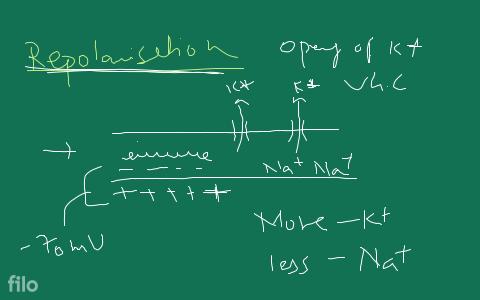 Repolarisation
Openg of K+
V.G.C
K+ K+
Na+ Na+
- - - -
+ + + + +
-70mV
More - K+
less - Na+
filo